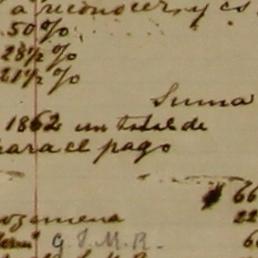 a reconocer, y es
50 %
28½ %
21½ %
Suma
1862 un total de
para el pago
66
22
G. J. M. R.
6